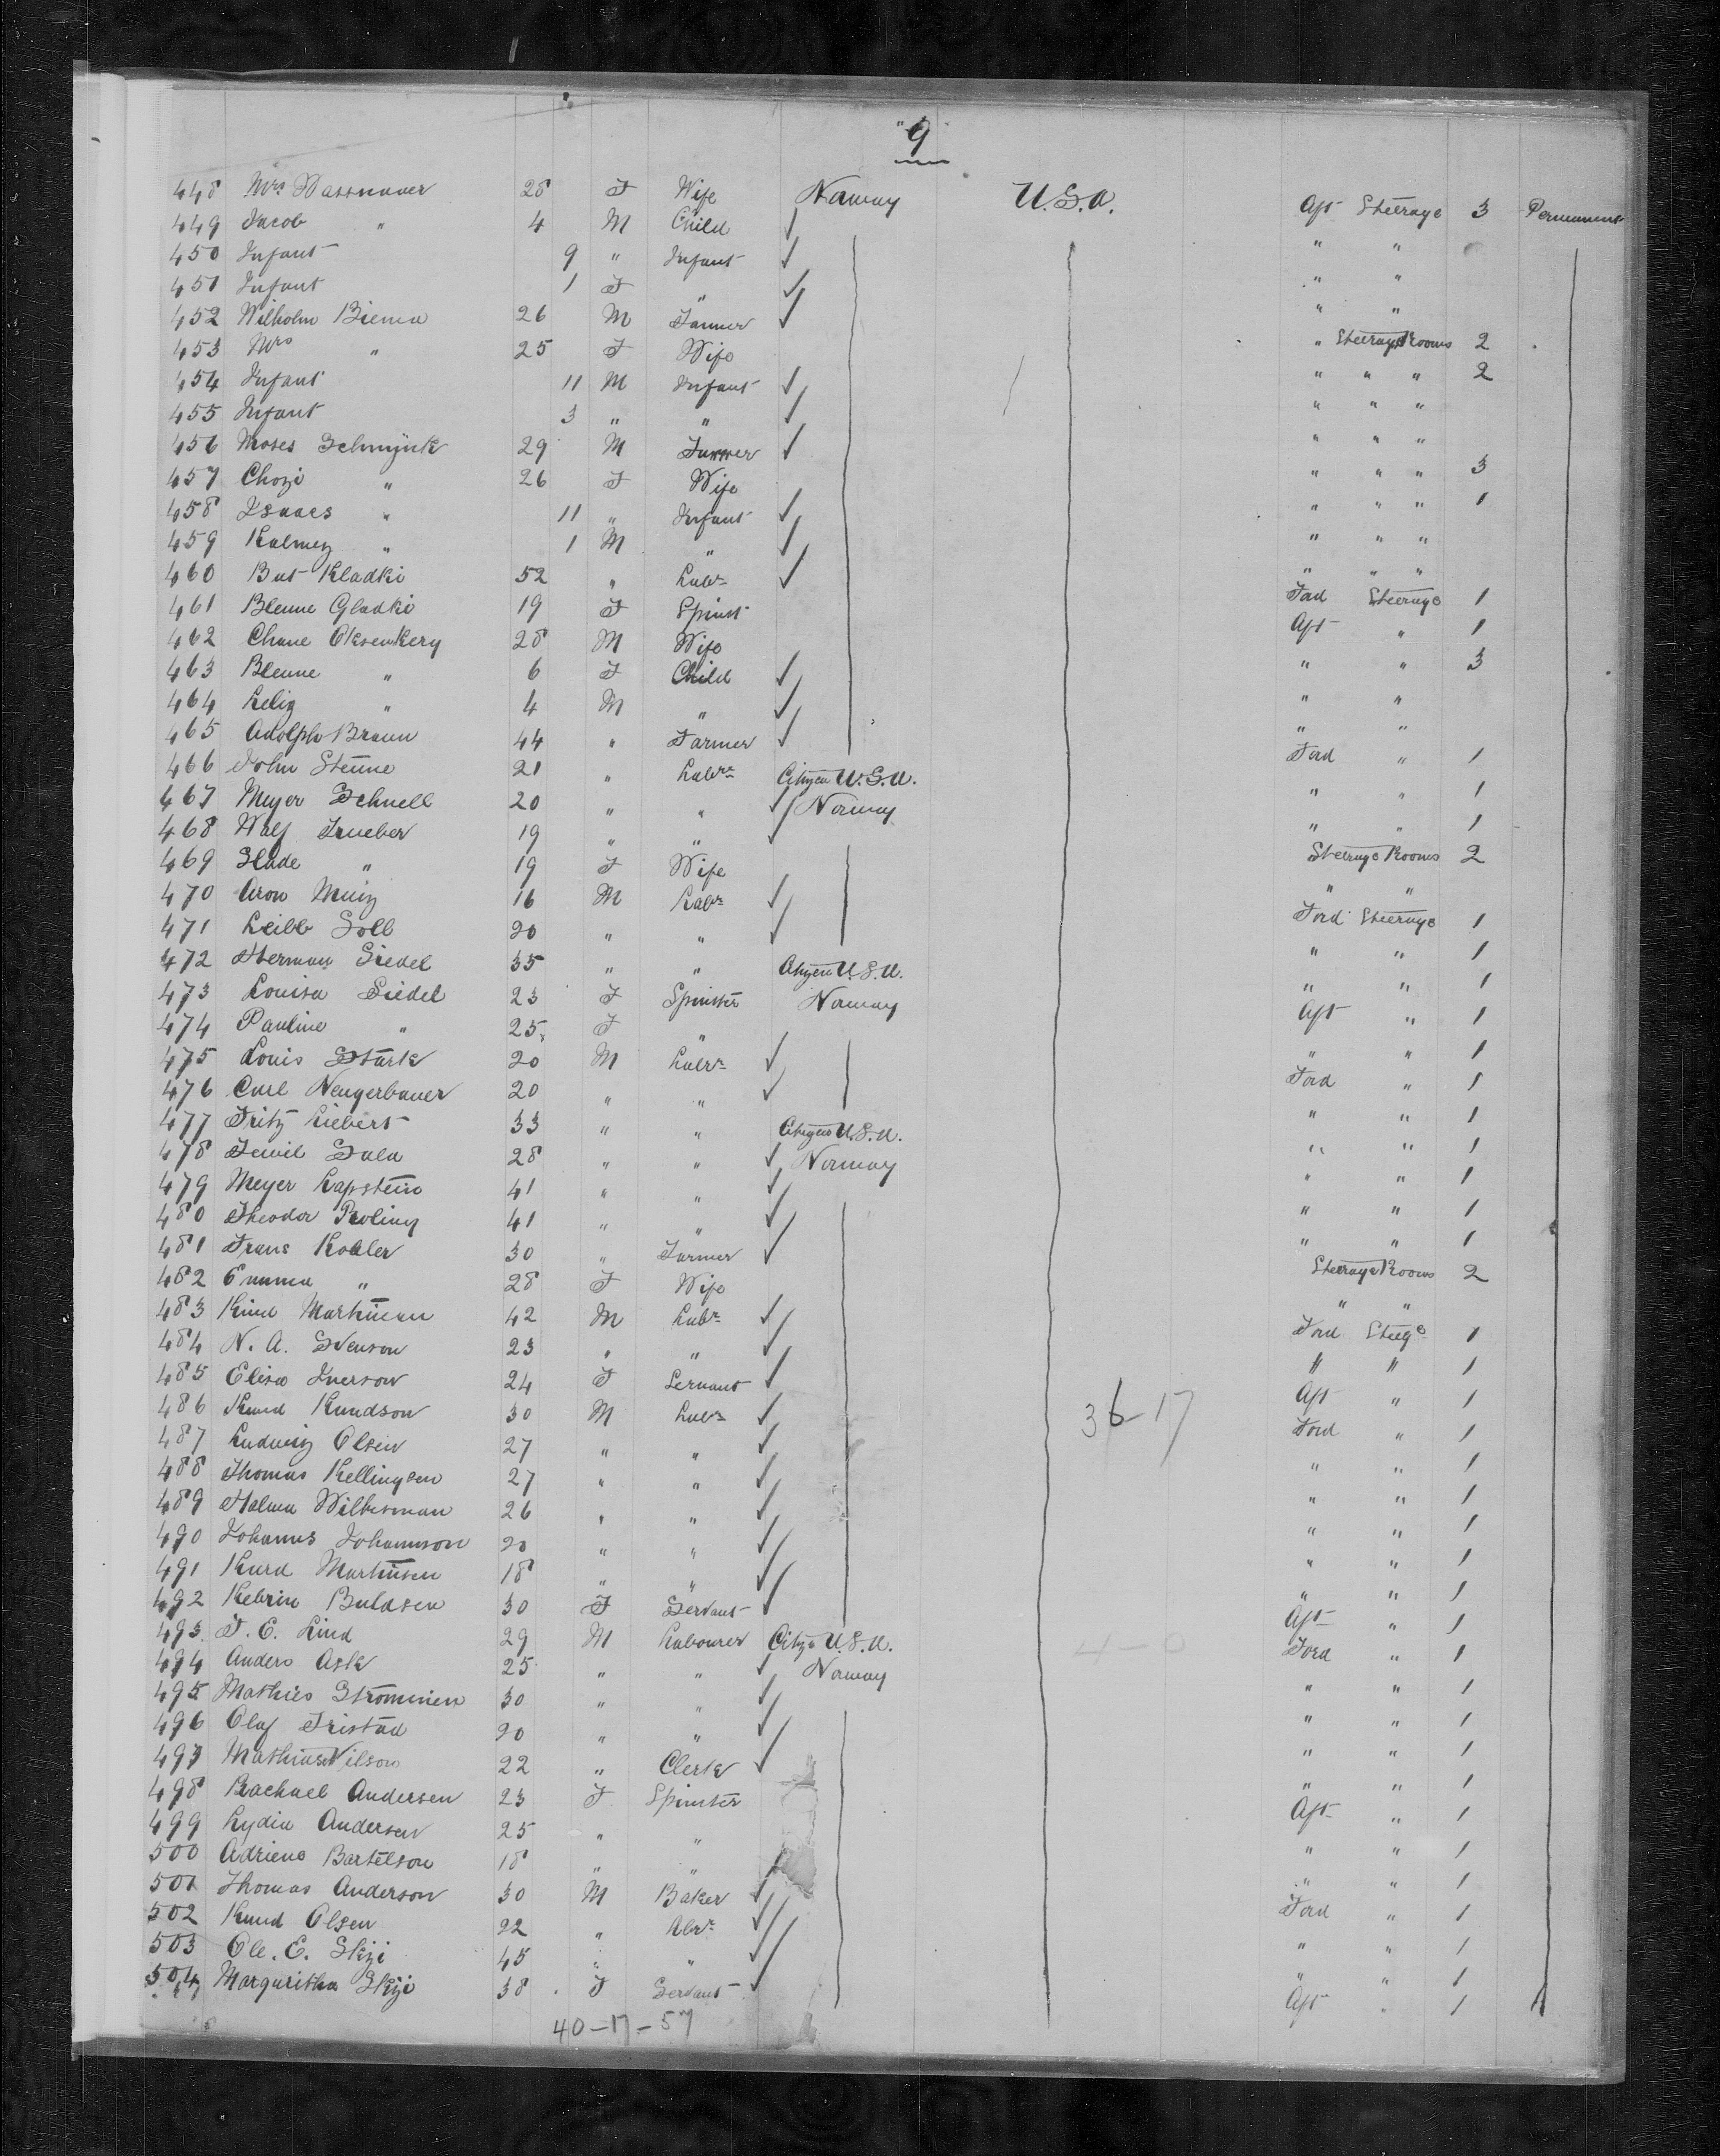 "9"
448 Mrs Wassnauer 28 F Wife Norway U.S.A. Aft Steerage 3 Permanent
449 Jacob " 4 M Child " "
450 Infant 9 " Infant " "
451 Infant 1 F " " "
452 Wilholm Biema 26 M Farmer " Steerage Rooms 2
453 Mrs " 25 F Wife " " " 2
454 Infant 11 M Infant " " "
455 Infant 3 " " " " "
456 Moses Schmijnk 29 M Farmer " " " 3
457 Chozi " 26 F Wife " " " 1
458 Isaacs " 11 " Infant " " "
459 Kalmez " 1 M " " " "
460 But Kladki 52 " Labr Ford Steerage 1
461 Blenne Gladki 19 F Spinst Aft " 1
462 Chane Oksenkery 28 M Wife " " 3
463 Blenne " 6 F Child " "
464 Kelig " 4 M " " "
465 Adolph Braun 44 " Farmer Ford " 1
466 John Stenne 21 " Labr Citizen U.S.A. " " 1
467 Meyer Schnell 20 " " Norway " " 1
468 Walf Trueber 19 " " Steerage Rooms 2
469 Slade " 19 F Wife " "
470 Aron Muiz 16 M Labr Ford Steerage 1
471 Leibb Soll 20 " " " " 1
472 Herman Siedel 35 " " Citizen U.S.A. " " 1
473 Louisa Siedel 23 F Spinster Norway Aft " 1
474 Pauline " 25 F " " " 1
475 Louis Stark 20 M Labr Ford " 1
476 Carl Neugerbauer 20 " " " " 1
477 Fritz Liebert 33 " " Citizen U.S.A. " " 1
478 Sala 28 " " Norway " " 1
479 Meyer Kapstein 41 " " " " 1
480 Theodor Proling 41 " " " " 1
481 Frans Kohler 30 " Farmer Steerage Rooms 2
482 Emma " 28 F Wife " "
483 Martinsen 42 M Labr Ford Steege 1
484 N. A. Svenson 23 " " " " 1
485 Elisa Iverson 24 F Servant Aft " 1
486 Knud Knudson 30 M Labr 36-17 Ford " 1
487 Ludwig Olsen 27 " " " " 1
488 Thomas Kellingsen 27 " " " " 1
489 Halma Wilkesman 26 " " " " 1
490 Johanns Johannson 20 " " " " 1
491 Kurd Martinsen 18 " " " " 1
492 Kebrin Buldsen 30 F Servant Aft " 1
493 F. E. Lind 29 M Labourer Citize U.S.A. 4-0 Ford " 1
494 Anders Ask 25 " " Norway " " 1
495 Mathies Strommen 30 " " " " 1
496 Olaf Tristad 20 " " " " 1
497 Mathias Nilson 22 " Clerk " " 1
498 Rachael Andersen 23 F Spinster Aft " 1
499 Lydia Andersen 25 " " " " 1
500 Adriene Bartelson 18 " " " " 1
501 Thomas Anderson 30 M Baker Ford " 1
502 Knud Olsen 22 " Labr " " 1
503 Ole. E. Skji 45 " " " " 1
504 Margaritha Skji 38 F Servant Aft " 1
40-17-57